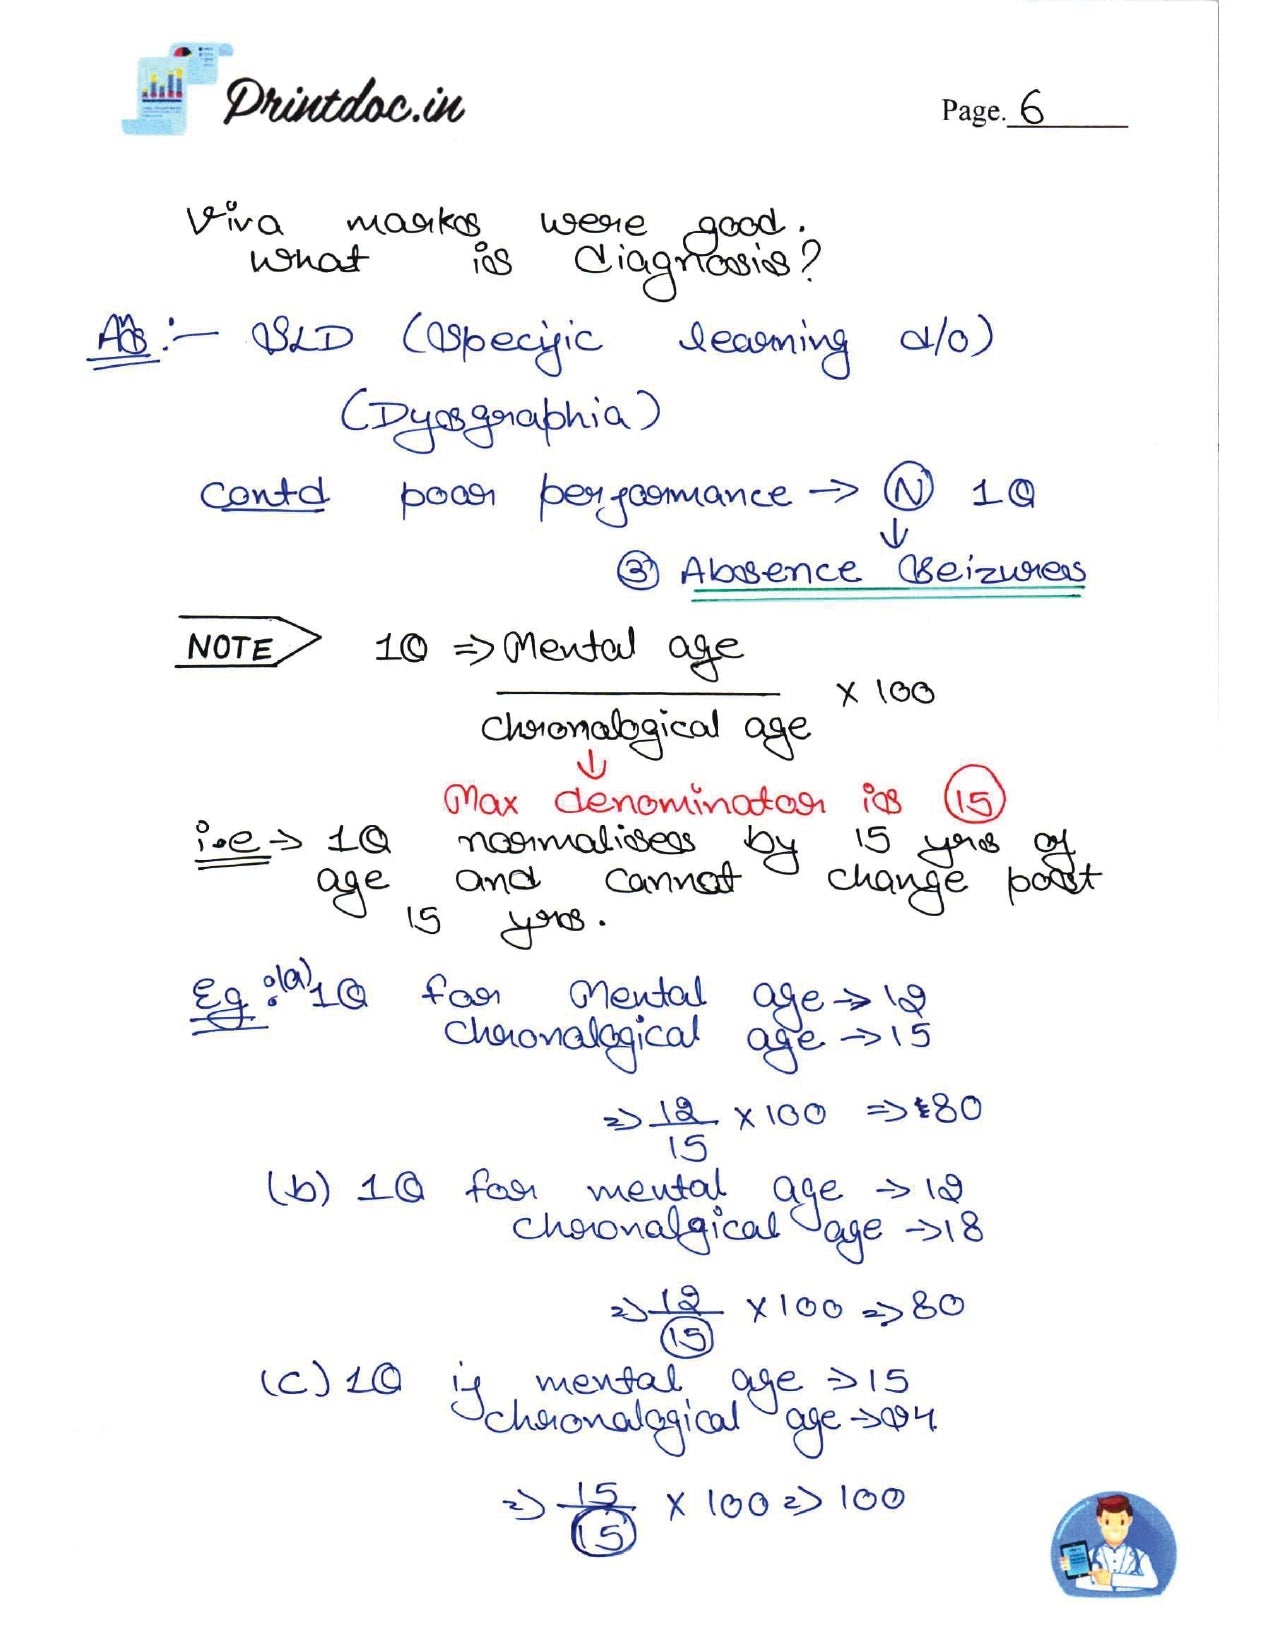 Printdoc.in
Page. 6
Viva marks were good.
What is diagnosis?
Ans :- SLD (Specific learning d/o)
(Dysgraphia)
Contd poor performance → (N) IQ
↓
③ Absence Seizures
NOTE IQ ⇒ Mental age
x 100
chronological age
↓
Max denominator is 15
i.e → IQ normalises by 15 yrs of
age and cannot change post
15 yrs.
Eg :(a) IQ for Mental age → 12
chronological age → 15
⇒ 12 x 100 ⇒ 80
15
(b) IQ for mental age → 12
chronalgical age → 18
⇒ 12 x 100 ⇒ 80
15
(c) IQ if mental age → 15
chronalogical age → 24
⇒ 15 x 100 ⇒ 100
15